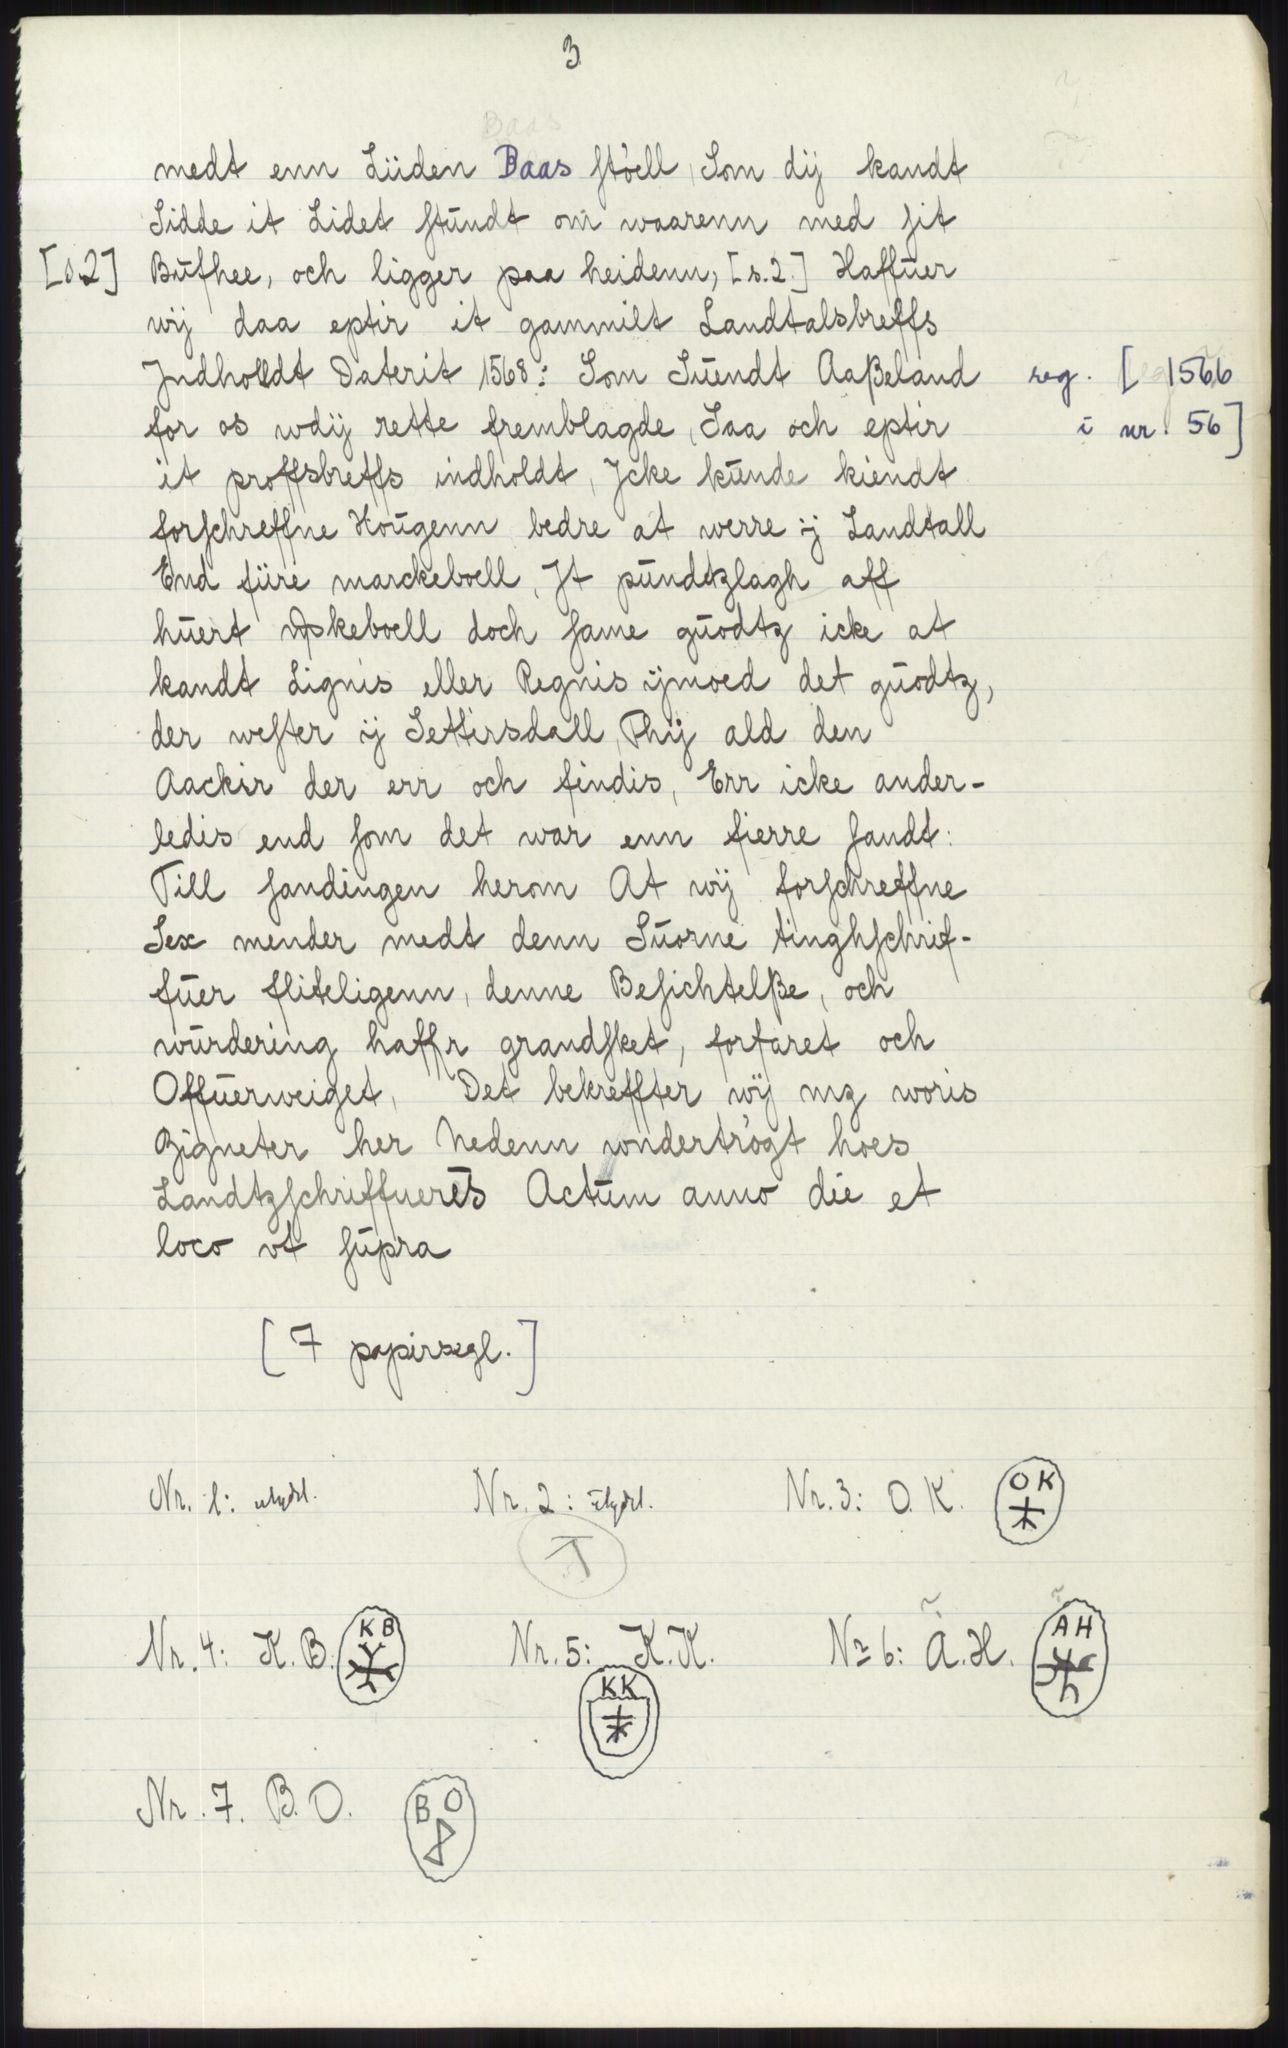 3
Baas
medt enn Lüden Baas stöell, Som dij kandt
Sidde it Lidet stundt om waarenn med sit
[s.2] Bufhee, och ligger paa heidenn, [s.2.] Haffuer
wij daa eptir it gammilt Landtalsbreffs
Jndholdt Daterit 1568: Som Suendt Aaßeland reg. [1566
for os wdij rette fremblagde, Saa och eptir i nr. 56]
it proffsbreffs indholdt, Jcke kunde kiendt
forschreffne Hougenn bedre at werre ij Landtall
End füre marckeboell, Jt pundtzlagh aff
huert skeboell doch same guodtz icke at
kandt Lignis eller Regnis ijmoed det guodtz,
der wester ij Settirsdall, Thij ald den
Aackir der err och findis, Err icke ander-
ledis end som det war enn fierre sandt:
Till sandingen herom At wij forschreffne
Sex mender medt denn Suorne tinghschrif-
fuer fliteligenn, denne Besichtelße, och
wurdering haffr grandsket, forfaret och
Offuerweiget, Det bekreffter wij mz woris
Zigneter her Nedenn wndertrögt hoes
Landtzschriffueres Actum anno die et
loco vt supra
[7 papirsegl.]
Nr. 1: utydel. Nr. 2: utydel. Nr. 3: O. K. O K
T
Nr. 4: K. B. K B Nr. 5: K. K. Nr 6: A. H. A H
K K
Nr. 7. B. O. B O